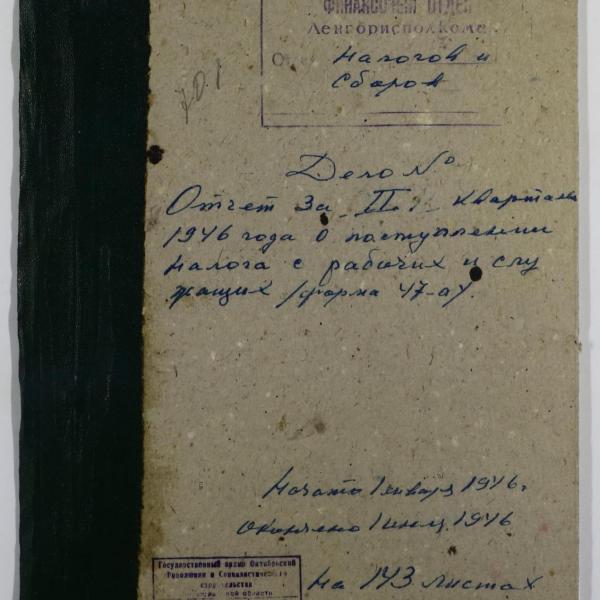 ФИНАНСОВЫЙ ОТДЕЛ
Ленгорисполкома
Налогов и
Сборов
Дело №
Отчет за II квартал
1946 года о поступлении
налога с рабочих и слу
жащих /форма 47-а/.
Начато 1 января 1946.
окончено 1 июля 1946
на 143 листах
Государственный архив Октябрьской
Революции и Социалистического
строительства
области